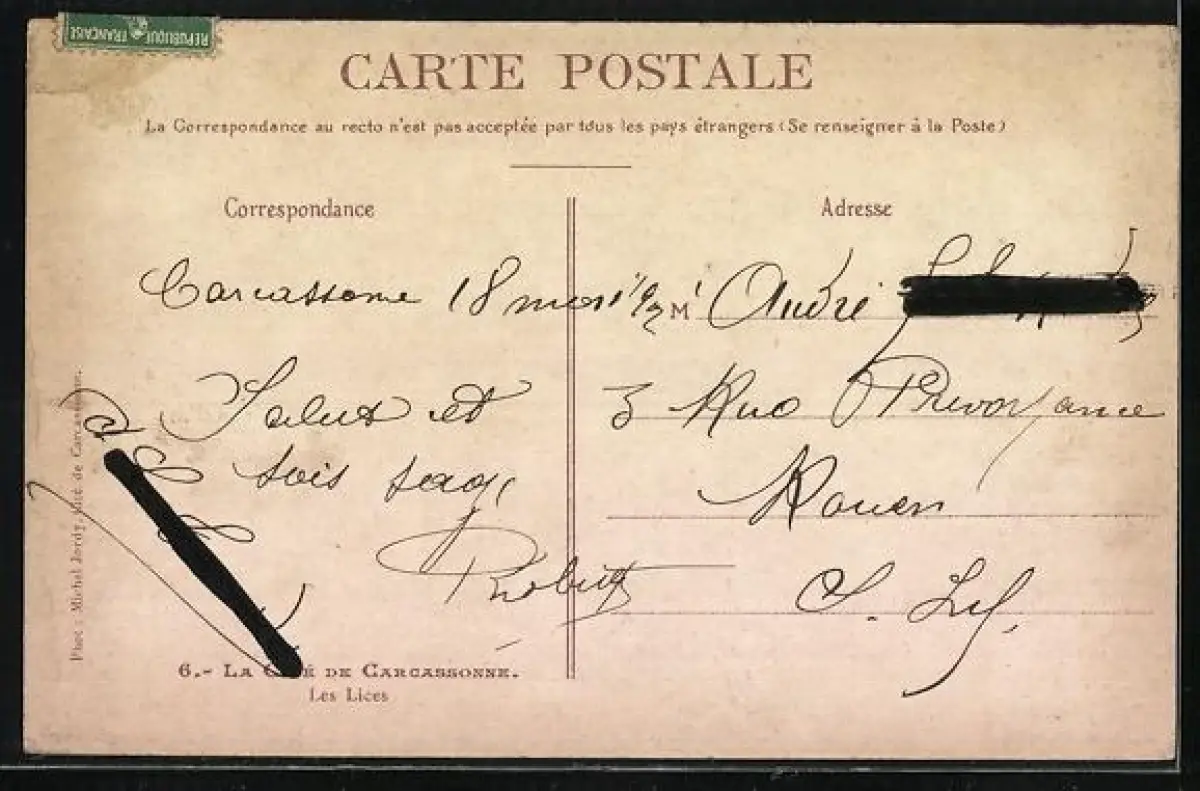 RÉPUBLIQUE FRANÇAISE
CARTE POSTALE
La Correspondance au recto n'est pas acceptée par tous les pays étrangers (Se renseigner à la Poste)
Correspondance
Carcassonne 18 mars
Salut et
sois sage
Robert
Adresse
M' André
3 Rue Prévoyance
Rouen
S. Inf.
Phot : Michel Jordy, Cité de Carcassonne.
6.- LA CITÉ DE CARCASSONNE.
Les Lices